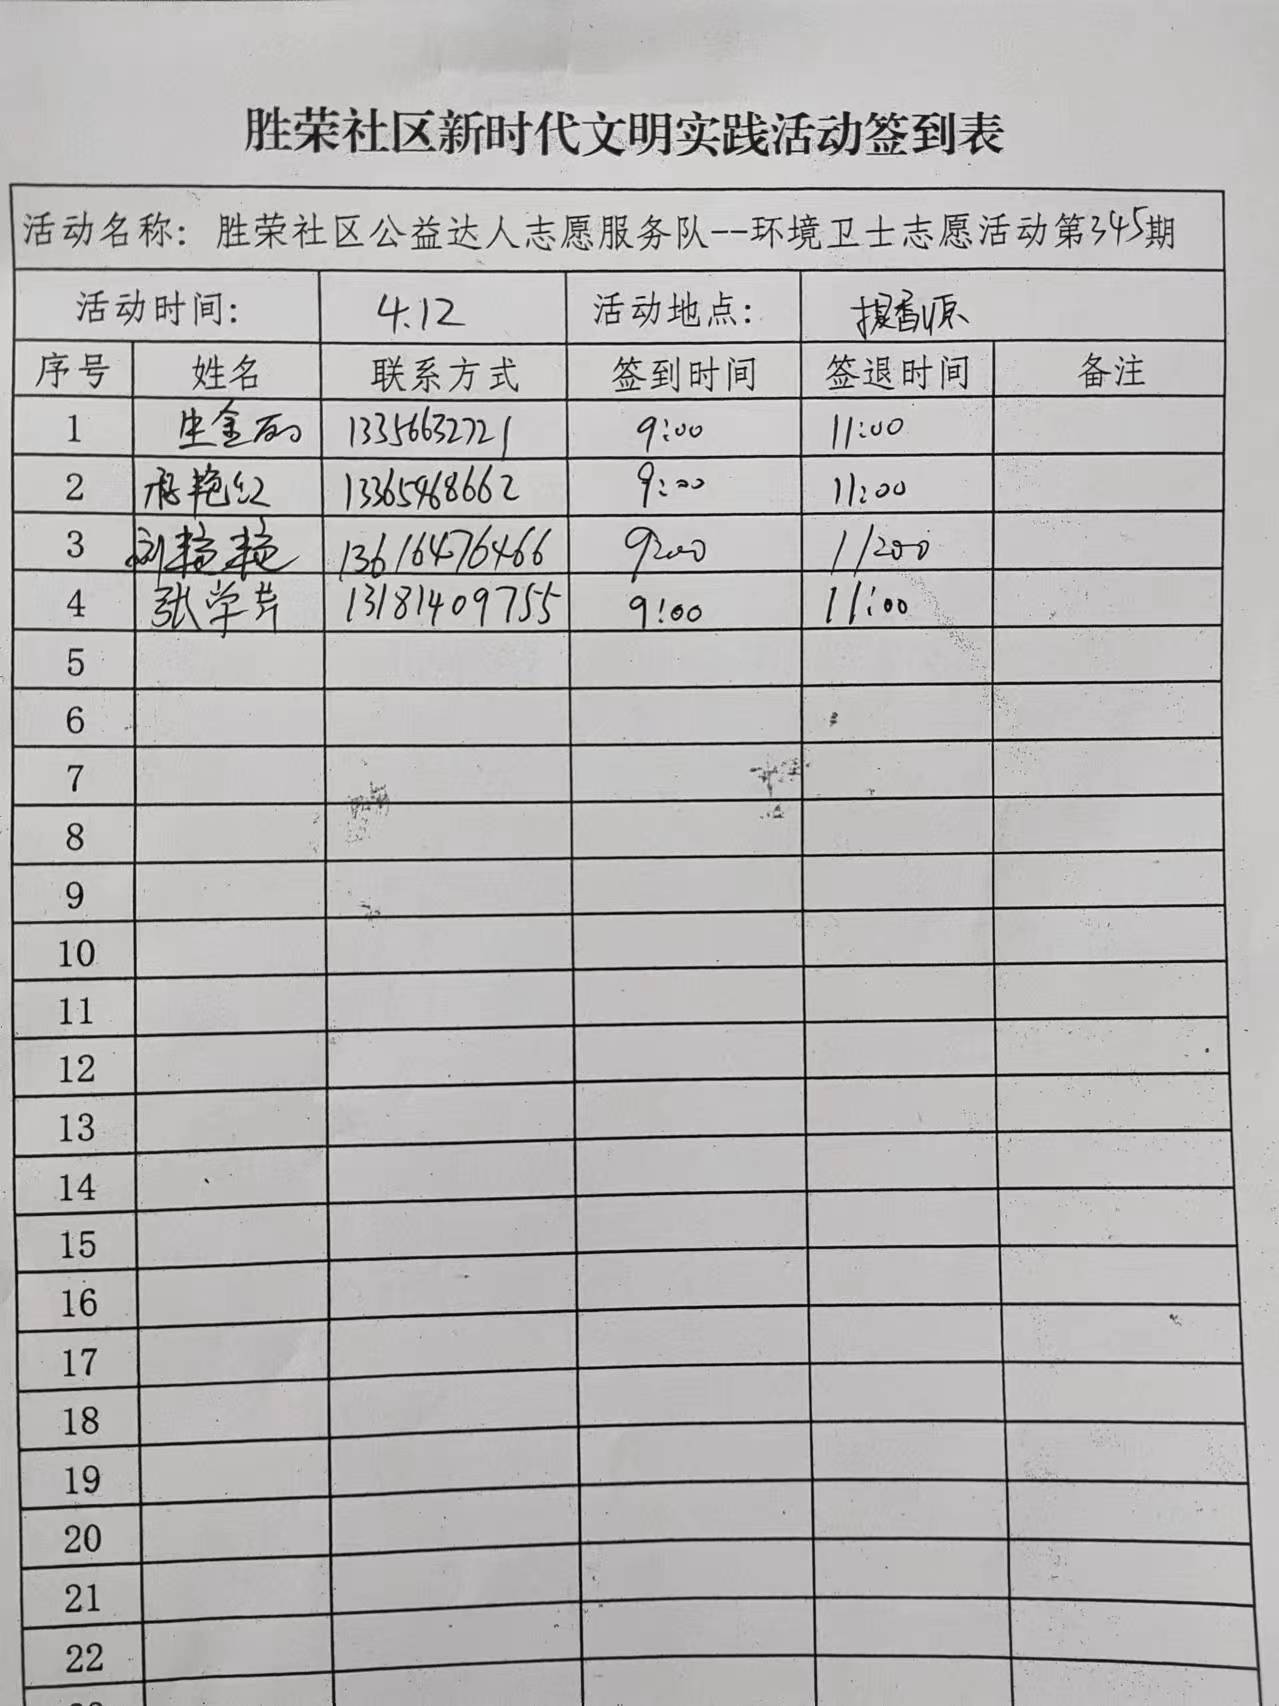 胜荣社区新时代文明实践活动签到表
活动名称：胜荣社区公益达人志愿服务队--环境卫士志愿活动第345期
活动时间： 4.12 活动地点： 香源
序号 姓名 联系方式 签到时间 签退时间 备注
1 金 13356632721 9:00 11:00
2 艳红 13365468662 9:00 11:00
3 刘艳艳 13616476466 9:00 11:00
4 张学芹 13181409755 9:00 11:00
5
6
7
8
9
10
11
12
13
14
15
16
17
18
19
20
21
22